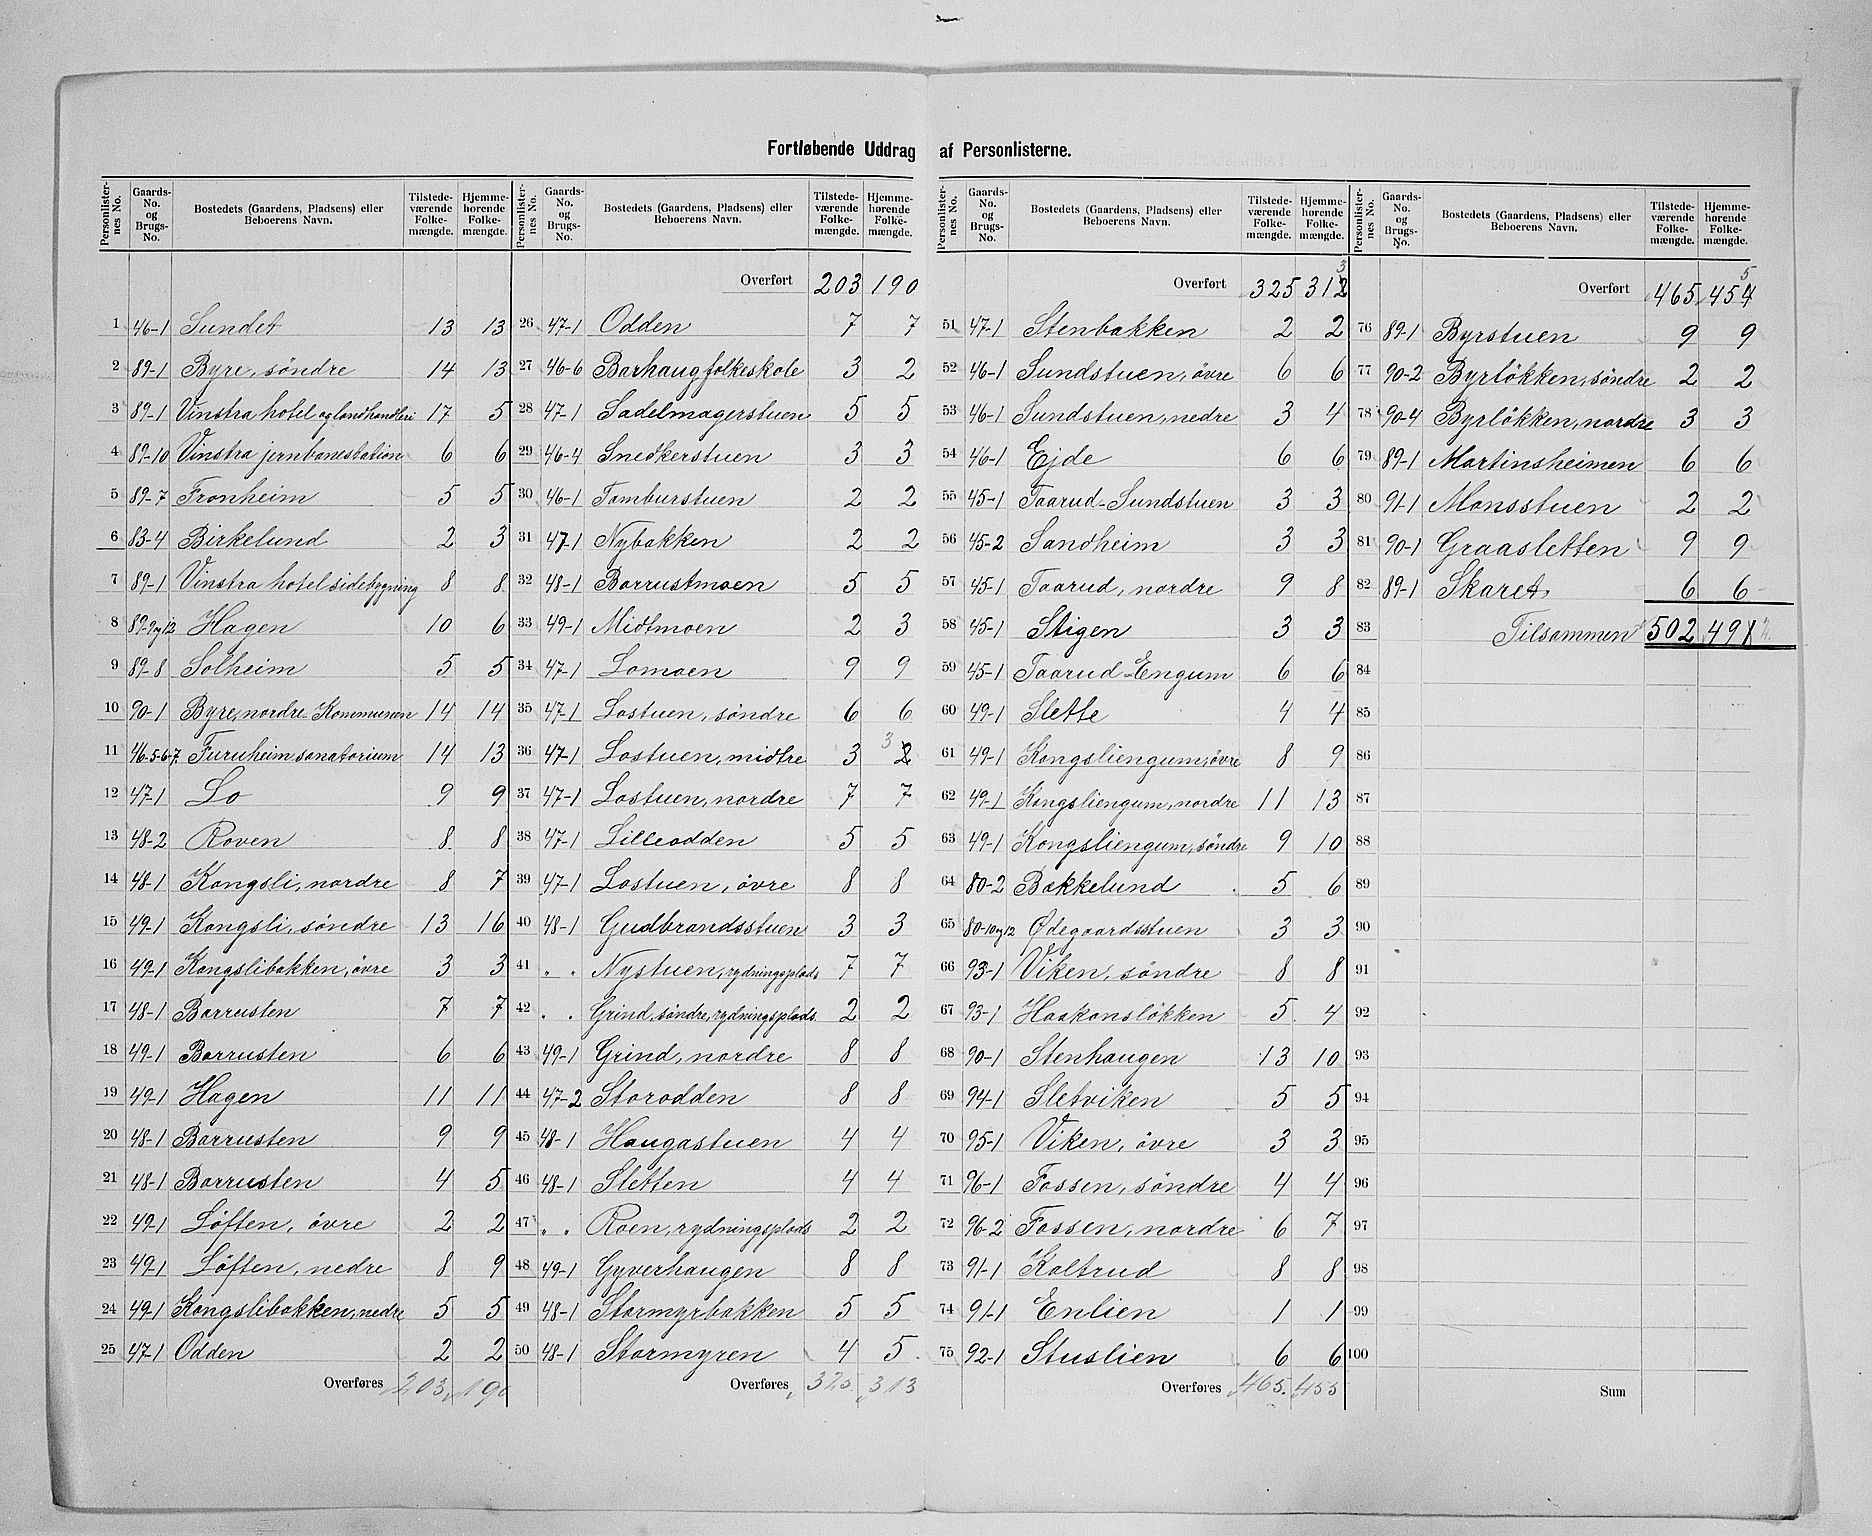 Fortløbende Uddrag af Personlisterne.
Personlister-nes No. | Gaards-No. og Brugs-No. | Bostedets (Gaardens, Pladsens) eller Beboerens Navn. | Tilstede-værende Folke-mængde. | Hjemme-hørende Folke-mængde.
1 46-1 Sundet 13 13
2 89-1 Byre, søndre 14 13
3 89-1 Vinstra hotel og landhandleri 17 5
4 89-10 Vinstra jernbanestation 6 6
5 89-7 Fronheim 5 5
6 83-4 Birkelund 2 3
7 89-1 Vinstra hotel sidebygning 8 8
8 89-9 og 12 Hagen 10 6
9 89-8 Solheim 5 5
10 90-1 Byre, nordre Kommunen 14 14
11 46-5-6-7 Furuheim sanatorium 14 13
12 47-1 Lo 9 9
13 48-2 Roven 8 8
14 48-1 Kongsli, nordre 8 7
15 49-1 Kongsli, søndre 13 16
16 49-1 Kongslibakken, övre 3 3
17 48-1 Barrusten 7 7
18 49-1 Barrusten 6 6
19 49-1 Hagen 11 11
20 48-1 Barrusten 9 9
21 48-1 Barrusten 4 5
22 49-1 Løften, övre 2 2
23 49-1 Løften, nedre 8 9
24 49-1 Kongslibakken, nedre 5 5
25 47-1 Odden 2 2
Overføres 203 190
Personlister-nes No. | Gaards-No. og Brugs-No. | Bostedets (Gaardens, Pladsens) eller Beboerens Navn. | Tilstede-værende Folke-mængde. | Hjemme-hørende Folke-mængde.
Overført 203 190
26 47-1 Odden 7 7
27 46-6 Barhaug folkeskole 3 2
28 47-1 Sadelmagerstuen 5 5
29 46-4 Snedkerstuen 3 3
30 46-1 Tamburstuen 2 2
31 47-1 Nybakken 2 2
32 48-1 Barrustmoen 5 5
33 49-1 Midtmoen 2 3
34 47-1 Lomoen 9 9
35 47-1 Lostuen, søndre 6 6
36 47-1 Lostuen, midtre 3 3 2
37 47-1 Lostuen, nordre 7 7
38 47-1 Lilleodden 5 5
39 47-1 Lostuen, övre 8 8
40 48-1 Gudbrandsstuen 3 3
41 " " Nystuen, rydningsplads 7 7
42 " " Grind, søndre, rydningsplads 2 2
43 49-1 Grind, nordre 8 8
44 47-2 Storodden 8 8
45 48-1 Haugastuen 4 4
46 48-1 Sletten 4 4
47 " " Roen, rydningsplads 2 2
48 49-1 Gyverhaugen 8 8
49 48-1 Stormyrbakken 5 5
50 48-1 Stormyren 4 5
Overføres 325 313
Personlister-nes No. | Gaards-No. og Brugs-No. | Bostedets (Gaardens, Pladsens) eller Beboerens Navn. | Tilstede-værende Folke-mængde. | Hjemme-hørende Folke-mængde.
3
Overført 325 312
51 47-1 Stenbakken 2 2
52 46-1 Sundstuen, övre 6 6
53 46-1 Sundstuen, nedre 3 4
54 46-1 Ejde 6 6
55 45-1 Taarud-Sundstuen 3 3
56 45-2 Sandheim 3 3
57 45-1 Taarud, nordre 9 8
58 45-1 Stigen 3 3
59 45-1 Taarud-Engum 6 6
60 49-1 Slette 4 4
61 49-1 Kongsliengum, övre 8 9
62 49-1 Kongsliengum, nordre 11 13
63 49-1 Kongsliengum, søndre 9 10
64 80-2 Bakkelund 5 6
65 80-10 og 12 Ødegaardsstuen 3 3
66 93-1 Viken, søndre 8 8
67 93-1 Haakonsløkken 5 4
68 90-1 Stenhaugen 13 10
69 94-1 Sletviken 5 5
70 95-1 Viken, övre 3 3
71 96-1 Fossen, søndre 4 4
72 96-2 Fossen, nordre 6 7
73 91-1 Koltrud 8 8
74 91-1 Enlien 1 1
75 92-1 Stuslien 6 6
Overføres 465 455
Personlister-nes No. | Gaards-No. og Brugs-No. | Bostedets (Gaardens, Pladsens) eller Beboerens Navn. | Tilstede-værende Folke-mængde. | Hjemme-hørende Folke-mængde.
5
Overført 465 454
76 89-1 Byrstuen 9 9
77 90-2 Byrløkken, søndre 2 2
78 90-4 Byrløkken, nordre 3 3
79 89-1 Martinsheimen 6 6
80 91-1 Monsstuen 2 2
81 90-1 Graasletten 9 9
82 89-1 Skaret 6 6
83 Tilsammen 502 491 2
84
85
86
87
88
89
90
91
92
93
94
95
96
97
98
99
100
Sum